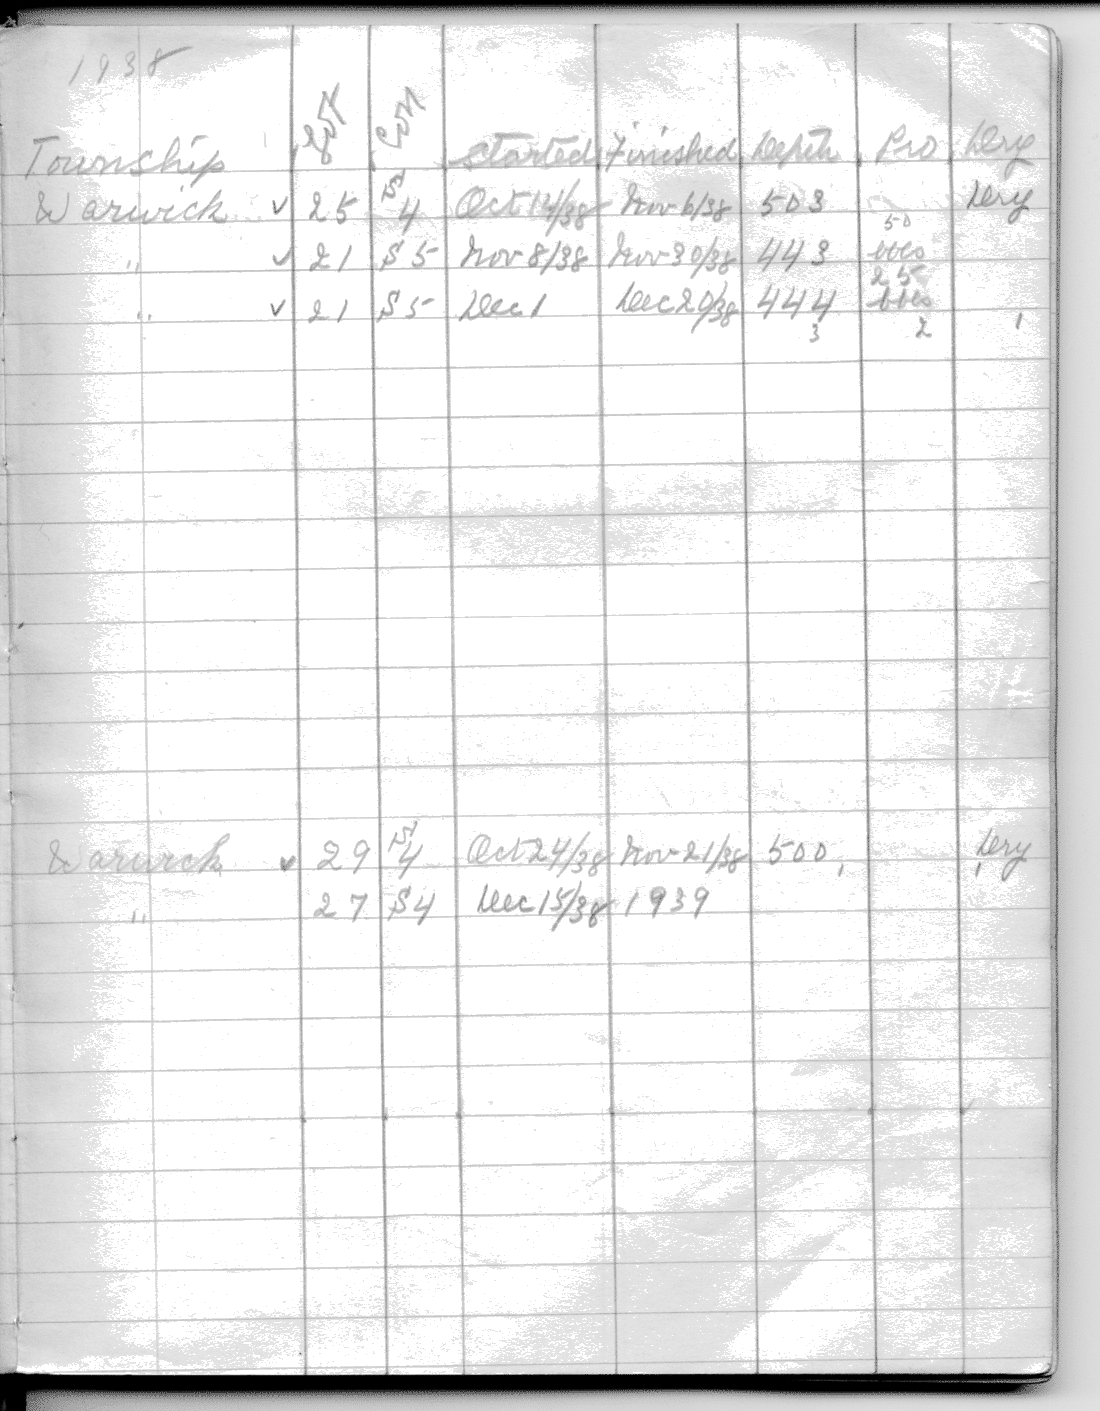 1938
Township Lot Con Started Finished Depth Pro Dry
Warwick ✓ 25 4 Oct 14/38 Nov 6/38 503 Dry
50
" ✓ 21 S 5 Nov 8/38 Nov 30/38 443 bbls
25
" ✓ 21 S 5 Dec 1 Dec 20/38 444 bbls
3 2 1
Warwick ✓ 29 4 Oct 24/38 Nov 21/38 500 Dry
" 27 S 4 Dec 15/38 1939